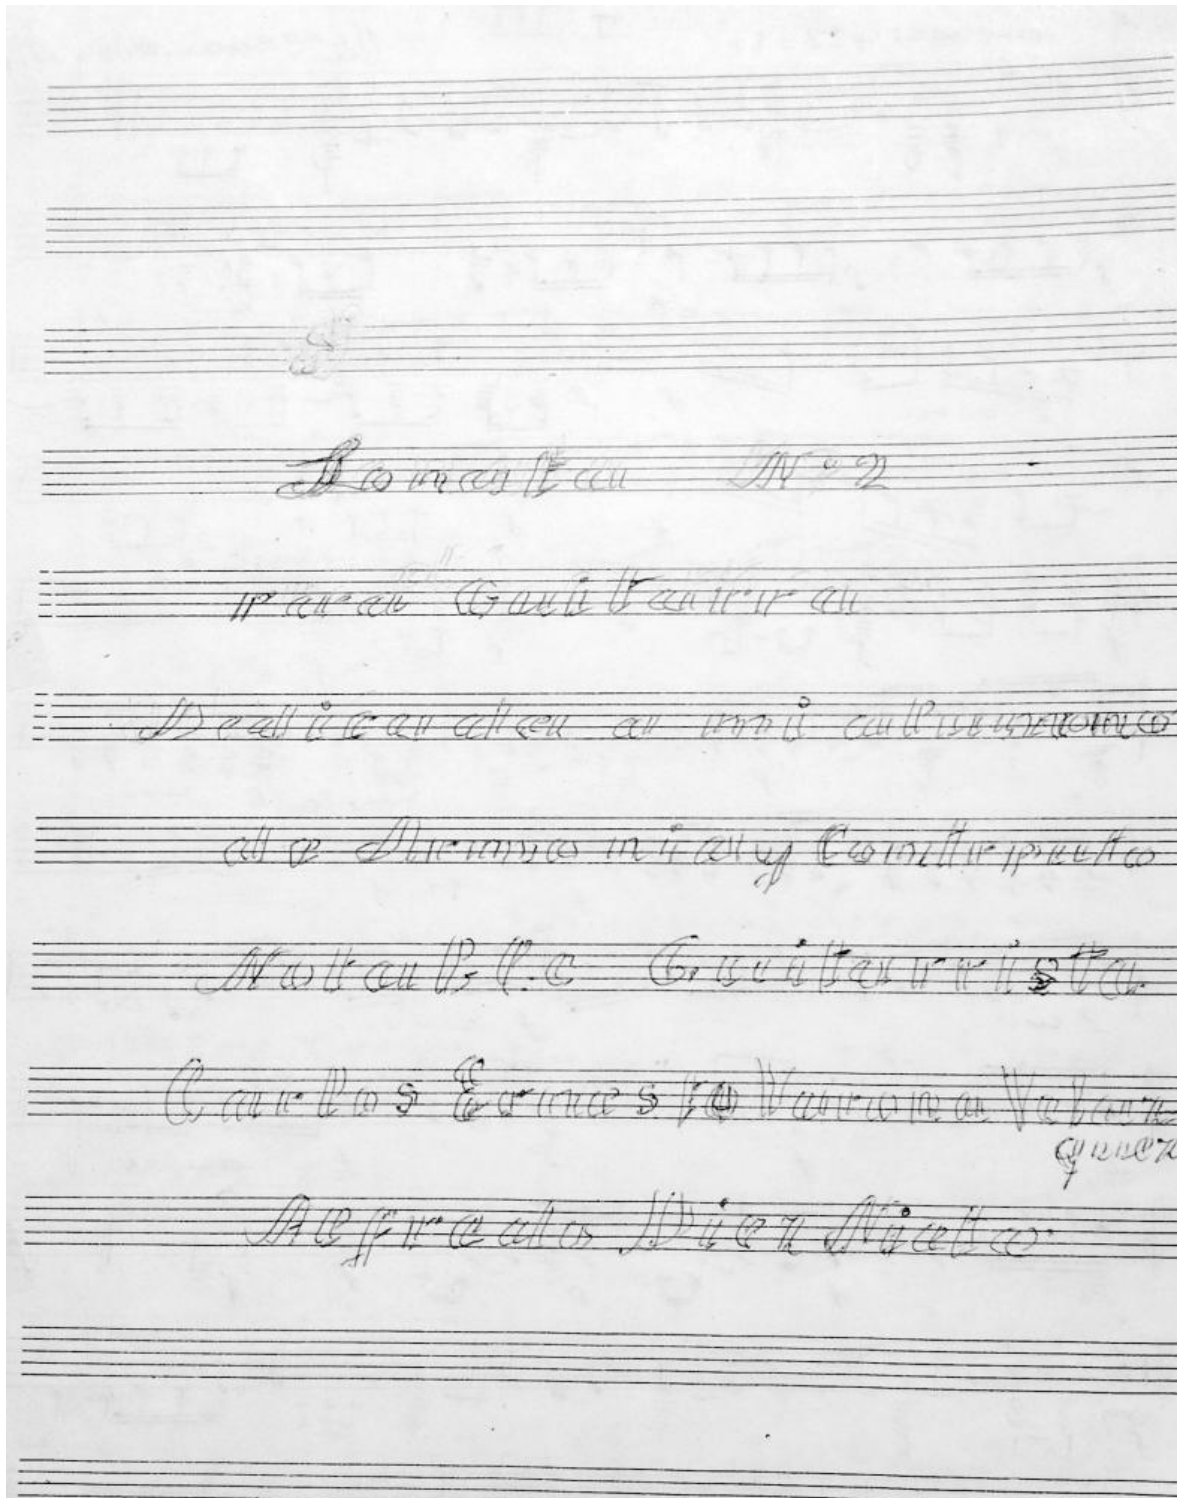 Sonata Nº 2
para Guitarra
Dedicada a mi alumno
de Armonia y Contrapunto
Notable Guitarrista
Carlos Ernesto Varona Velaz
quez
Alfredo Diez Nieto